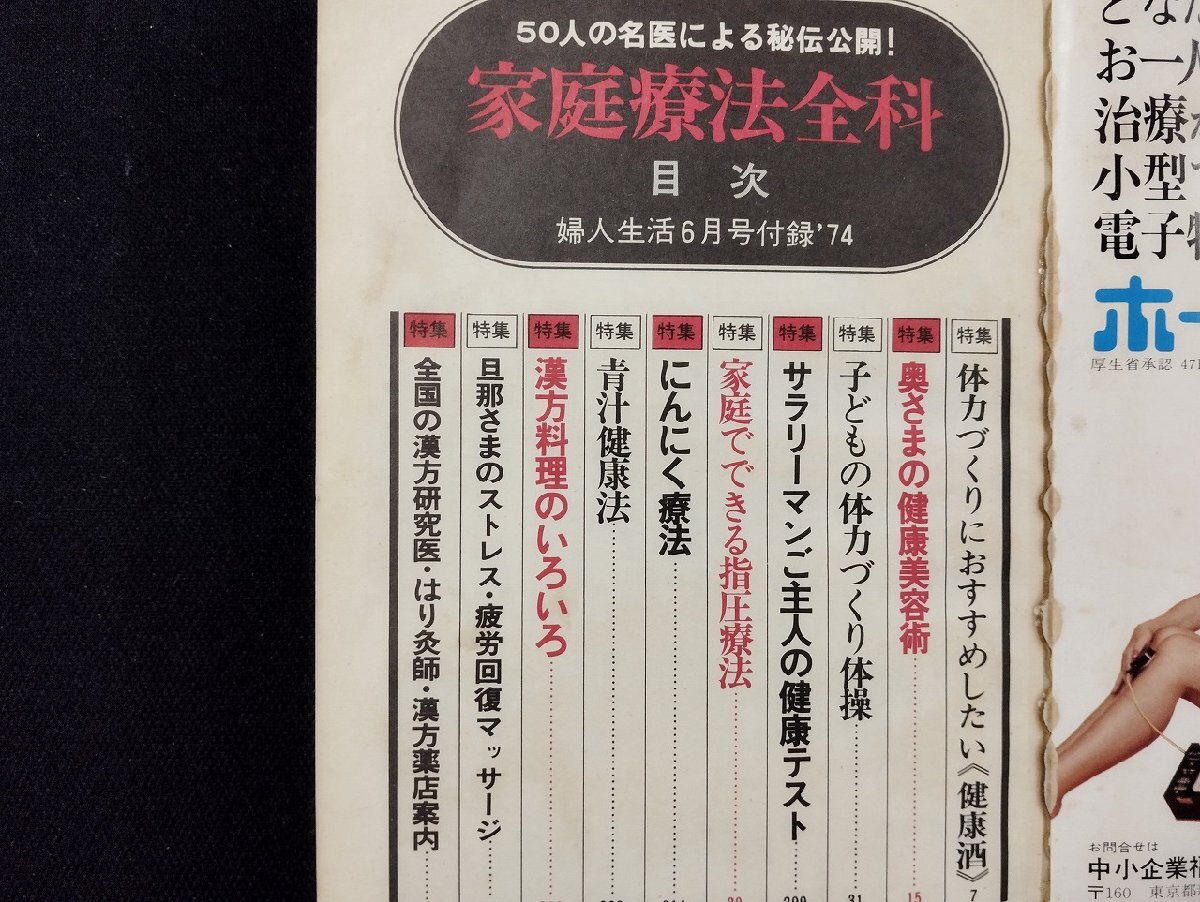 50人の名医による秘伝公開!
家庭療法全科
目次
婦人生活6月号付録'74
特集
体力づくりにおすすめしたい《健康酒》 7
特集
奥さまの健康美容術 15
特集
子どもの体力づくり体操 31
特集
サラリーマンご主人の健康テスト
特集
家庭でできる指圧療法
特集
にんにく療法
特集
青汁健康法
特集
漢方料理のいろいろ
特集
旦那さまのストレス・疲労回復マッサージ
特集
全国の漢方研究医・はり灸師・漢方薬店案内
お一
治療
小型
電子
ホー
厚生省承認 47
お問合せは
中小企業
〒160 東京都